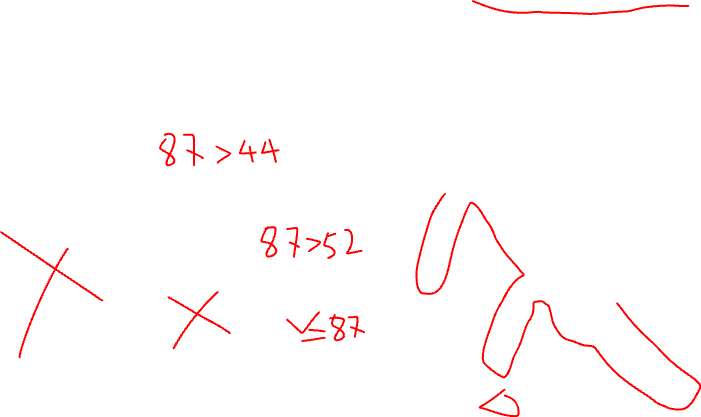 87>44
87>52
v≤87